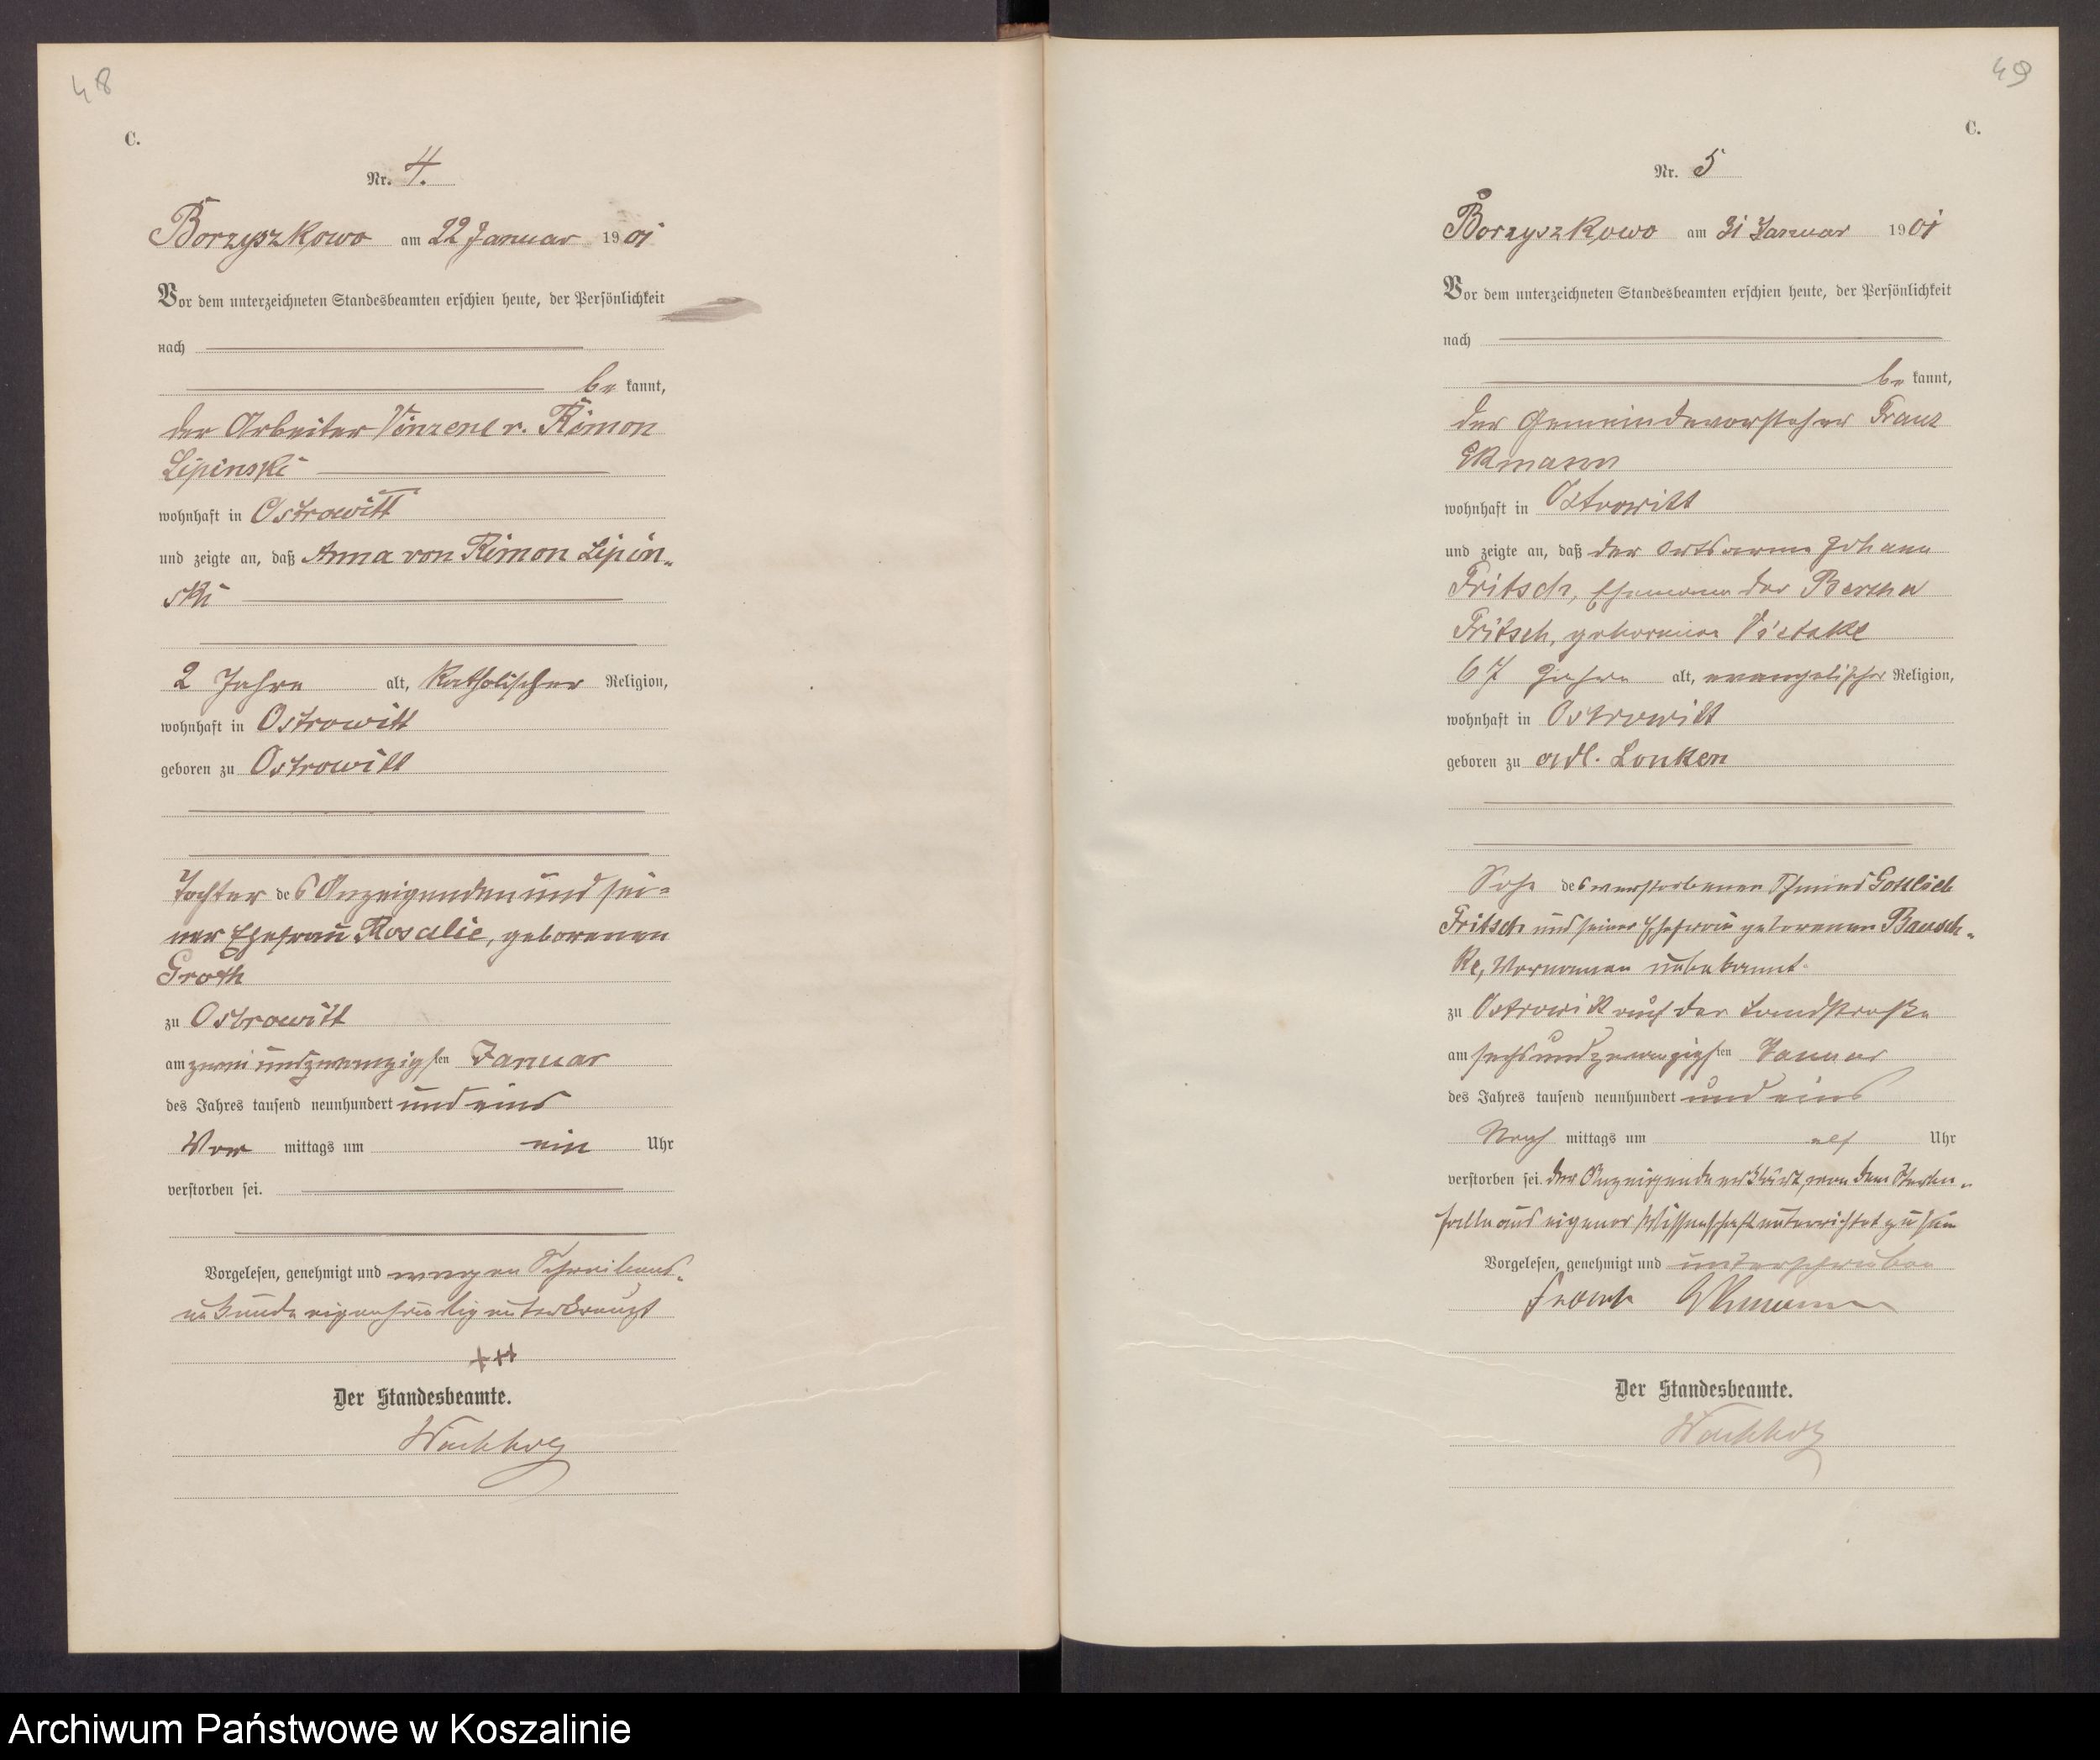 48
C.
Nr. 4.
Borzyszkowo am 22 Januar 1901
Vor dem unterzeichneten Standesbeamten erschien heute, der Persönlichkeit
nach
be kannt,
der Arbeiter Vinzent v. Kimon
Lipinski
wohnhaft in Ostrowitt
und zeigte an, daß Anna von Kimon Lipin-
ski
2 Jahre alt, katholischer Religion,
wohnhaft in Ostrowitt
geboren zu Ostrowitt
Tochter des Anzeigenden und sei=
ner Ehefrau Rosalie, geborenen
Groth
zu Ostrowitt
am zwei und zwanzigsten Januar
des Jahres tausend neunhundert und eins
Vor mittags um ein Uhr
verstorben sei.
Vorgelesen, genehmigt und wegen Schreibens-
unkunde eigenhändig unterkreuzt
+++
Der Standesbeamte.
Wachholz
49
C.
Nr. 5
Borzyszkowo am 31 Januar 1901
Vor dem unterzeichneten Standesbeamten erschien heute, der Persönlichkeit
nach
be kannt,
der Gemeindevorsteher Franz
wohnhaft in Ostrowitt
und zeigte an, daß der Ortsarme Johann
Fritsch, Ehemann der
Fritsch, geborene
67 Jahre alt, evangelischer Religion,
wohnhaft in Ostrowitt
geboren zu adl. Lonken
Sohn des verstorbenen Gottlieb
Fritsch und seiner Ehefrau geborenen Bausch-
ke, Vornamen unbekannt.
zu Ostrowitt auf der Landstraße
am sechs und zwanzigsten Januar
des Jahres tausend neunhundert und eins
Nach mittags um elf Uhr
verstorben sei. Der Anzeigende erklärt, von dem Sterbe-
falle aus eigener Wissenschaft unterrichtet zu sein
Vorgelesen, genehmigt und unterschrieben
Der Standesbeamte.
Wachholz
Archiwum Państwowe w Koszalinie